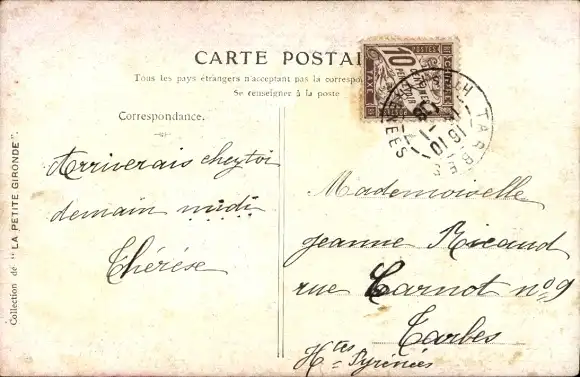 CARTE POSTALE
Tous les pays étrangers n'acceptent pas la
Se renseigner à la poste
Correspondance.
POSTES
10
CENTIMES
A PERCEVOIR
TAXE
TARBES
PYRENEES
Arriverais chez toi
demain midi
Thérèse
Mademoiselle
Jeanne Ricaud
rue Carnot nº 9
Tarbes
Htes Pyrénées
Collection de "LA PETITE GIRONDE".